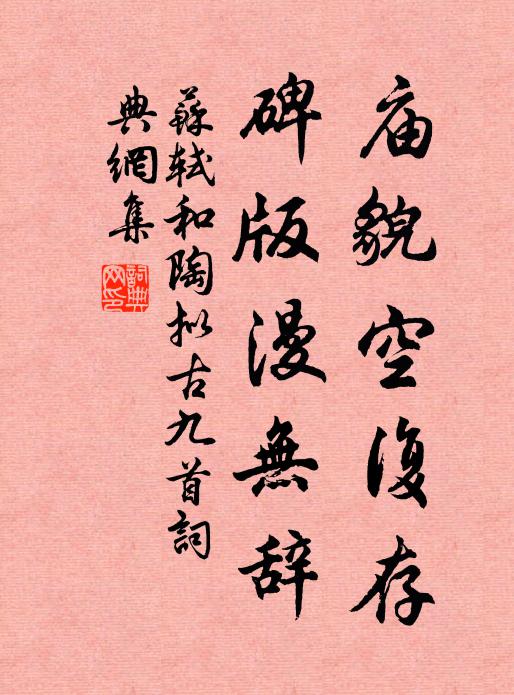 庙貌空復存
碑版漫無辞
蘇轼和陶拟古九首詞
典網集
詞典网印